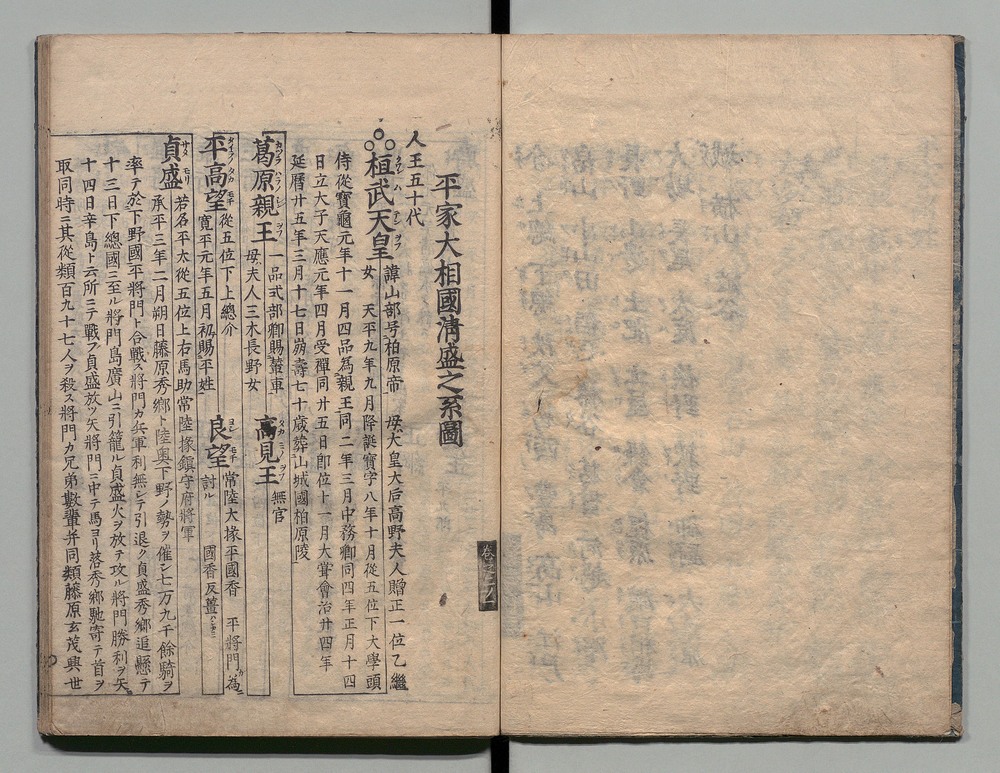 平家大相國淸盛之系圖
人王五十代
桓武天皇 諱山部号柏原帝 母大皇大后高野夫人贈正一位乙繼
女 天平九年九月降誕寶字八年十月從五位下大學頭
侍從寶龜元年十一月四品為親王同二年三月中務卿同四年正月十四
日立大子天應元年四月受禪同廿五日即位十一月大嘗會治廿四年
延曆廿五年三月十七日崩壽七十歲葬山城國柏原陵
葛原親王 一品式部卿賜輦車 母夫人三木長野女
高見王 無官
平高望 從五位下上總介 寛平元年五月初賜平姓
良望 常陸大掾平國香 平將門カ為ニ
討ル 國香反
貞盛 若名平太從五位上右馬助常陸掾鎮守府將軍
承平三年二月朔日藤原秀鄉ト陸奥下野ノ勢ヲ催シ七万九千餘騎ヲ
率テ於下野國平將門ト合戰ス將門カ兵軍利無シテ引退ク貞盛秀鄉追懸テ
十三日下總國ニ至ル將門島廣山ニ引籠ル貞盛火ヲ放テ攻ル將門勝利ヲ失
十四日辛島ト云所ニテ戰フ貞盛放ツ矢將門ニ中テ馬ヨリ落秀鄉馳寄テ首ヲ
取同時ニ其從類百九十七人ヲ殺ス將門カ兄弟數輩并同類藤原玄茂興世